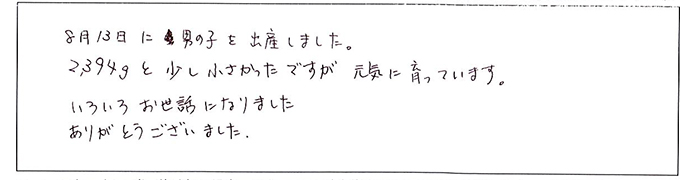 8月13日に男の子を出産しました。
2,394gと少し小さかったですが元気に育っています。
いろいろお世話になりました
ありがとうございました.